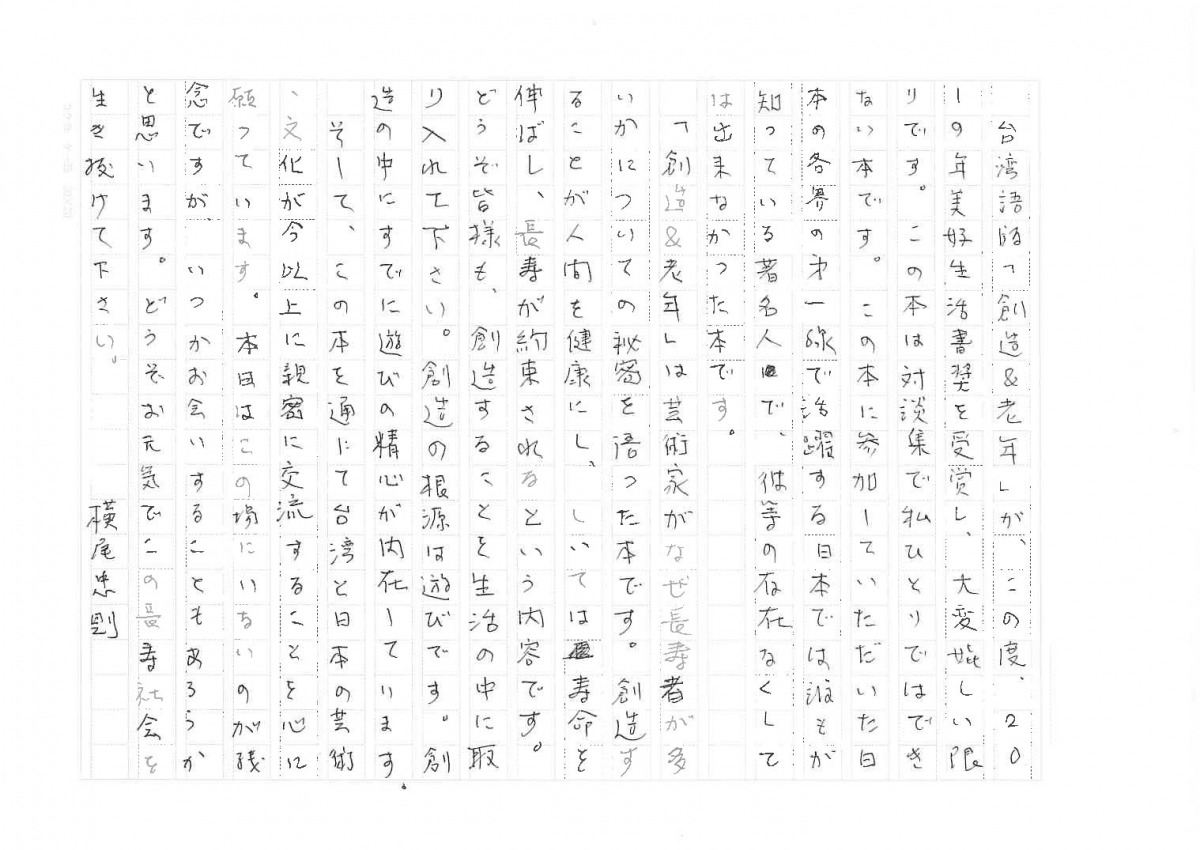 台湾語版「創造&老年」が、この度、20
19年美好生活書奨を受賞し、大変嬉しい限
りです。この本は対談集で私ひとりではでき
ない本です。この本に参加していただいた日
本の各界の第一線で活躍する日本では誰もが
知っている著名人で、彼等の存在なくして
は出来なかった本です。
「創造&老年」は芸術家がなぜ長寿者が多
いかについての秘密を語った本です。創造す
ることが人間を健康にし、しいては寿命を
伸ばし、長寿が約束されるという内容です。
どうぞ皆様も、創造することを生活の中に取
り入れて下さい。創造の根源は遊びです。創
造の中にすでに遊びの精心が内在しています。
そして、この本を通じて台湾と日本の芸術
、文化が今以上に親密に交流することを心に
願っています。本日はこの場にいないのが残
念ですが、いつかお会いすることもあろうか
と思います。どうぞお元気でこの長寿社会を
生き抜けて下さい。 横尾忠則